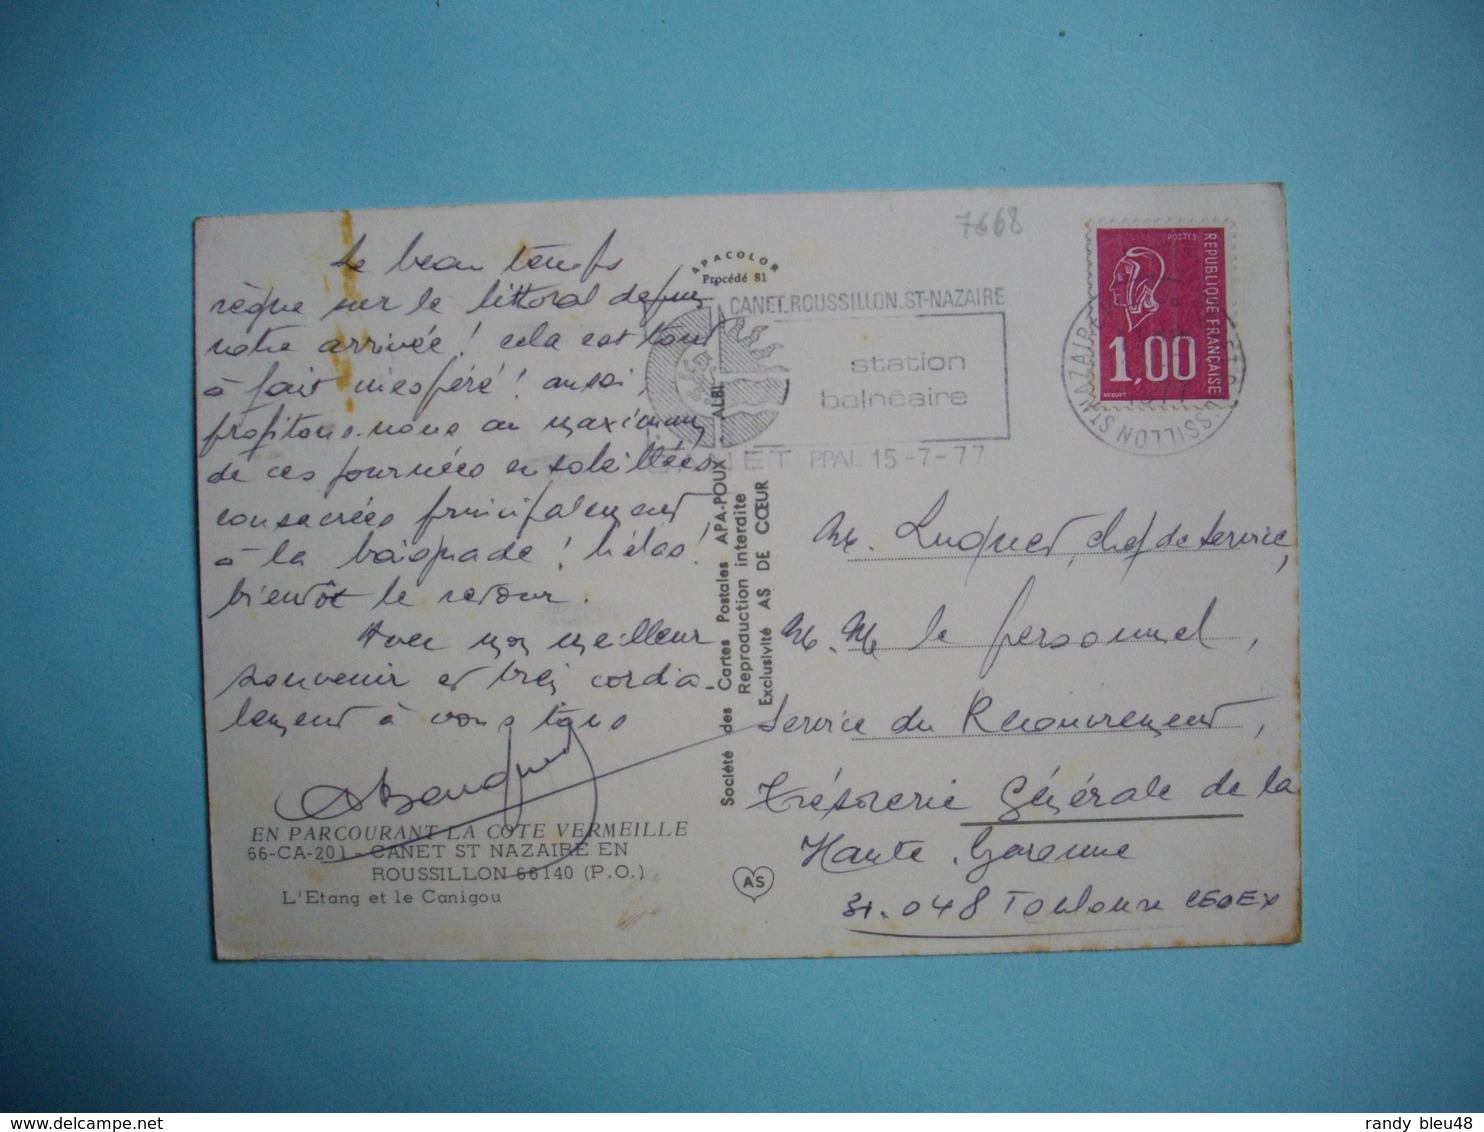 7668
Le beau temps
règne sur le littoral depuis
notre arrivée ! cela est tout
à fait inespéré ! aussi,
profitons-nous au maximum
de ces journées ensoleillées
consacrées principalement
à la baignade ! hélas !
bientôt le retour.
Avec mon meilleur
souvenir et très cordia-
lement à vous tous
EN PARCOURANT LA COTE VERMEILLE
66-CA-201 - CANET ST NAZAIRE EN
ROUSSILLON 66140 (P.O.)
L'Etang et le Canigou
APACOLOR
Procédé 81
Société des Cartes Postales APA-POUX - ALBI
Reproduction interdite
Exclusivité AS DE CŒUR
AS
CANET.ROUSSILLON.ST-NAZAIRE
station
balnéaire
CANET PPAL 15-7-77
POSTES
REPUBLIQUE FRANÇAISE
1,00
BEQUET
M. Luquet, chef de service,
M.M. le personnel,
Service du Recouvrement,
Trésorerie Générale de la
Haute Garonne
31.048 Toulouse CEDEX
delcampe.net
randy_bleu48